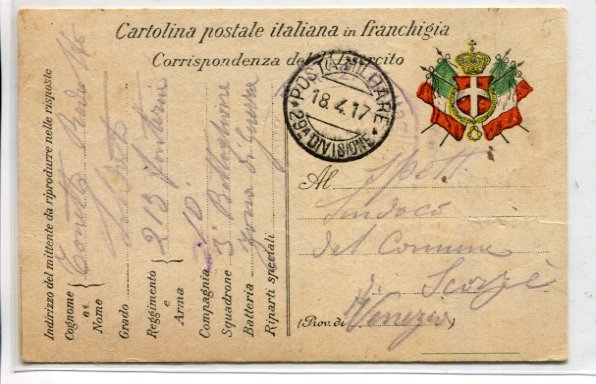 Cartolina postale italiana in franchigia
Corrispondenza del R. Esercito
POSTA MILITARE
18.4.17
29ª DIVISIONE
Indirizzo del mittente da riprodurre nelle risposte
Cognome
e
Nome
Grado
Reggimento 213 fanteria
e
Arma
Compagnia 10
Squadrone 3° Battaglione
Batteria Zona di guerra
Riparti speciali
Al Spett.
Sindaco
del Comune
di Scorzè
(Prov. di Venezia)